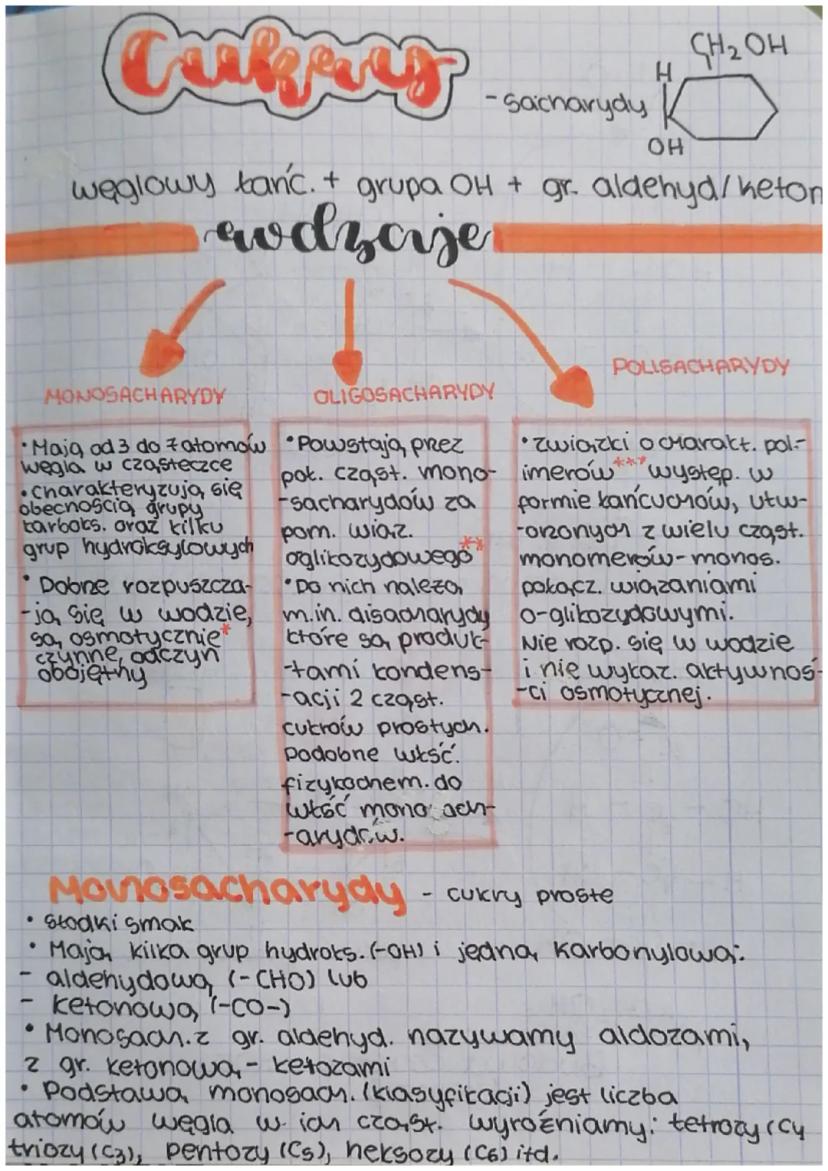 Cukry
- sacharydy
CH2OH
H
OH
węglowy łańc. + grupa OH + gr. aldehyd/keton
rodzaje
MONOSACHARYDY
• Mają od 3 do 7 atomów
węgla w cząsteczce
• charakteryzują się
obecnością grupy
karboks. oraz kilku
grup hydroksylowych
• Dobrze rozpuszcza-
-ją się w wodzie,
są osmotycznie*
czynne, odczyn
obojętny
OLIGOSACHARYDY
• Powstają prez
poł. cząst. mono-
-sacharydów za
pom. wiąz.
oglikozydowego**
• Do nich należą
m.in. disacharydy
które są produk-
-tami kondens-
-acji 2 cząst.
cukrów prostych.
Podobne włść.
fizykochem. do
włść monosach-
-arydów.
POLISACHARYDY
• związki o charakt. poli-
imerów*** występ. w
formie łańcuchów, utw-
-orzonych z wielu cząst.
monomerów - monos.
połącz. wiązaniami
o-glikozydowymi.
Nie rozp. się w wodzie
i nie wykaz. aktywnoś-
-ci osmotycznej.
Monosacharydy - cukry proste
• słodki smak
• Mają kilka grup hydroks. (-OH) i jedną karbonylową:
- aldehydową (-CHO) lub
- ketonową (-CO-)
• Monosach. z gr. aldehyd. nazywamy aldozami,
z gr. ketonową - ketozami
• Podstawą monosach. (klasyfikacji) jest liczba
atomów węgla w ich cząst. wyróżniamy: tetrozy (C4
triozy (C3), pentozy (C5), heksozy (C6) itd.